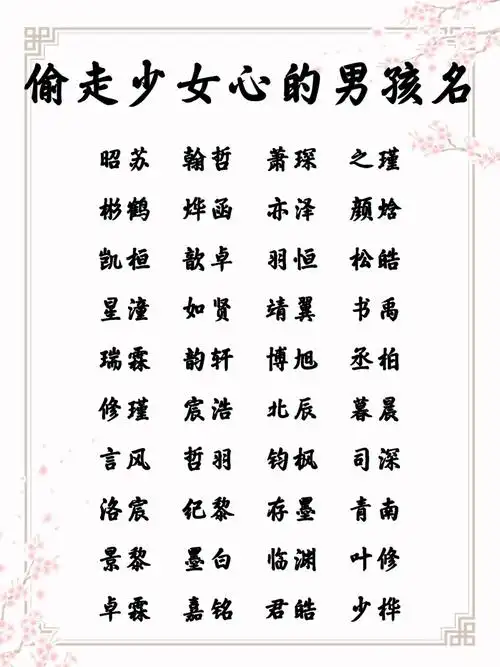 偷走少女心的男孩名
昭苏 翰哲 萧琛 之瑾
彬鹤 烨函 亦泽 颜焓
凯桓 歆卓 羽恒 松皓
星潼 如贤 靖翼 书禹
瑞霖 韵轩 博旭 丞柏
修瑾 宸浩 北辰 暮晨
言风 哲羽 钧枫 司深
洛宸 纪黎 存墨 青南
景黎 墨白 临渊 叶修
卓霖 嘉铭 君皓 少桦